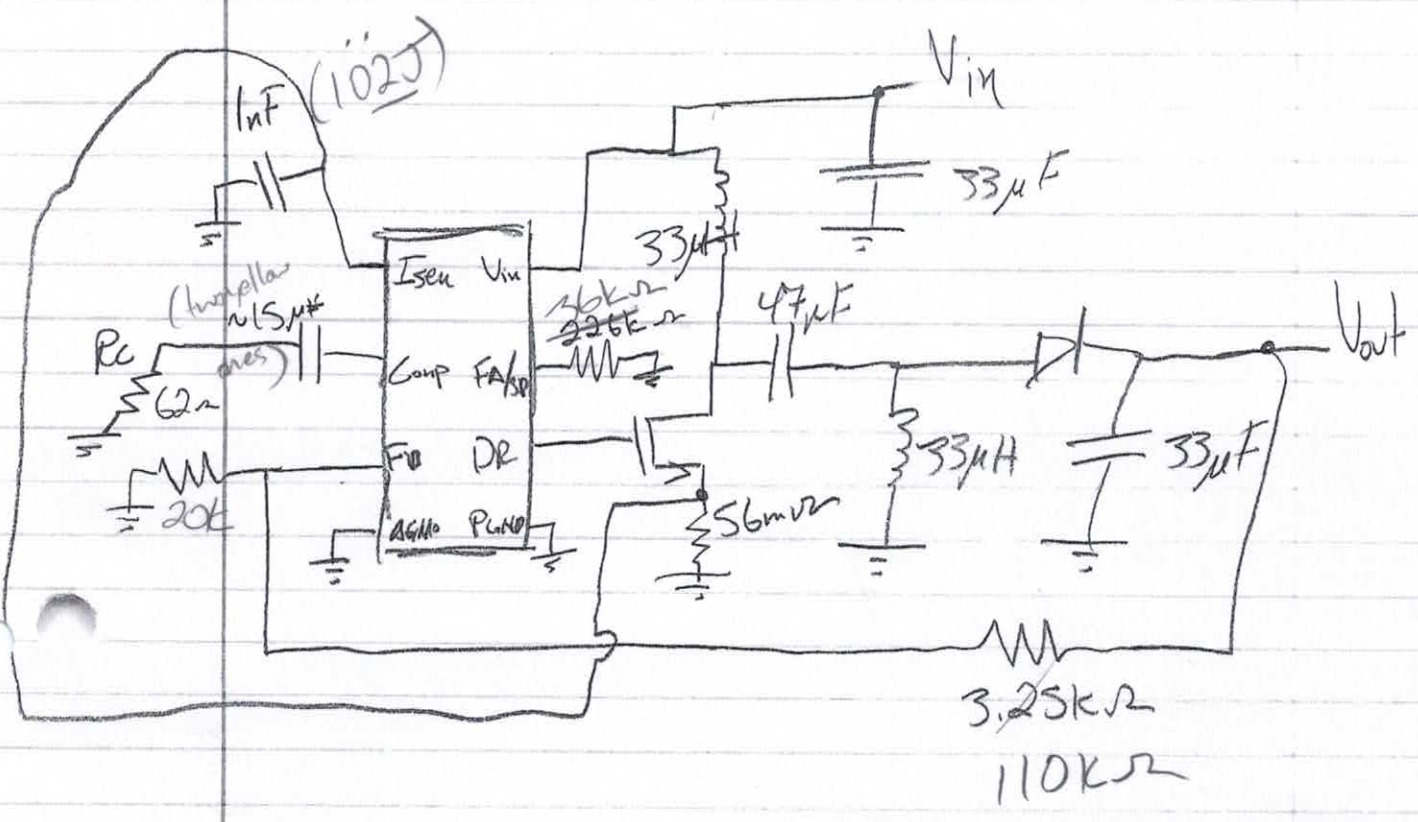 (102J)
1nF
Vin
33µF
33µH
Isen Vin
(two yellow ones)
~15µF
36kΩ
226kΩ
47µF
Vout
Rc
62Ω
Comp FA/SD
FB DR
33µH
33µF
20k
AGND PGND
56mΩ
3.25kΩ
110kΩ